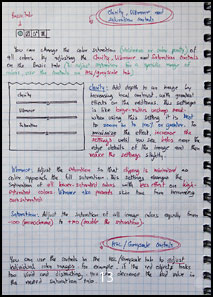 Basic tab
Clarity, Vibrance and
Saturation controls
You can change the color saturation (vividness or color purity) of
all colors by adjusting the Clarity, Vibrance and Saturation controls
on the Basic tab (To adjust saturation for a specific range of
colors, use the controls on HSL/Grayscale tab
Clarity: Add depth to an image by
increasing local contrast, with greatest
effects on the midtones. This setting
is like large-radius unsharp mask
when using this setting it is best
to zoom in to 100% or greater. To
maximize the effect, increase the
settings until you see halos near the
edge details of the image and then
reduce the settings slightly
clarity
Vibrance
Saturation
Vibrance: Adjust the saturation so that clipping is minimized as
color approach the full saturation. This settings changes the
saturation of all lower-saturated colors with less effect on high-
saturated colors. Vibrance also prevents skin tones from becoming
over saturated
Saturation: Adjust the saturation of all image colors equally from
-100 (monochrome) to +100 (double the saturation)
HSL/Grayscale controls
You can use the controls in the HSL/Grayscale tab to adjust
individual color ranges. For example, if the red objects looks
too vivid and distracting, you can decrease the Red value in
the nested saturation tab.
13